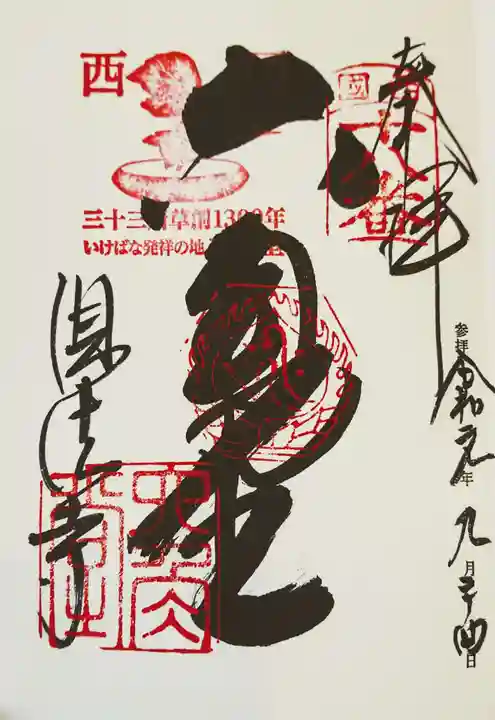 奉拝
十八番
参拝 令和元年九月二十四日
西
三十三所草創1300年
いけばな発祥の地
六角堂
頂法寺